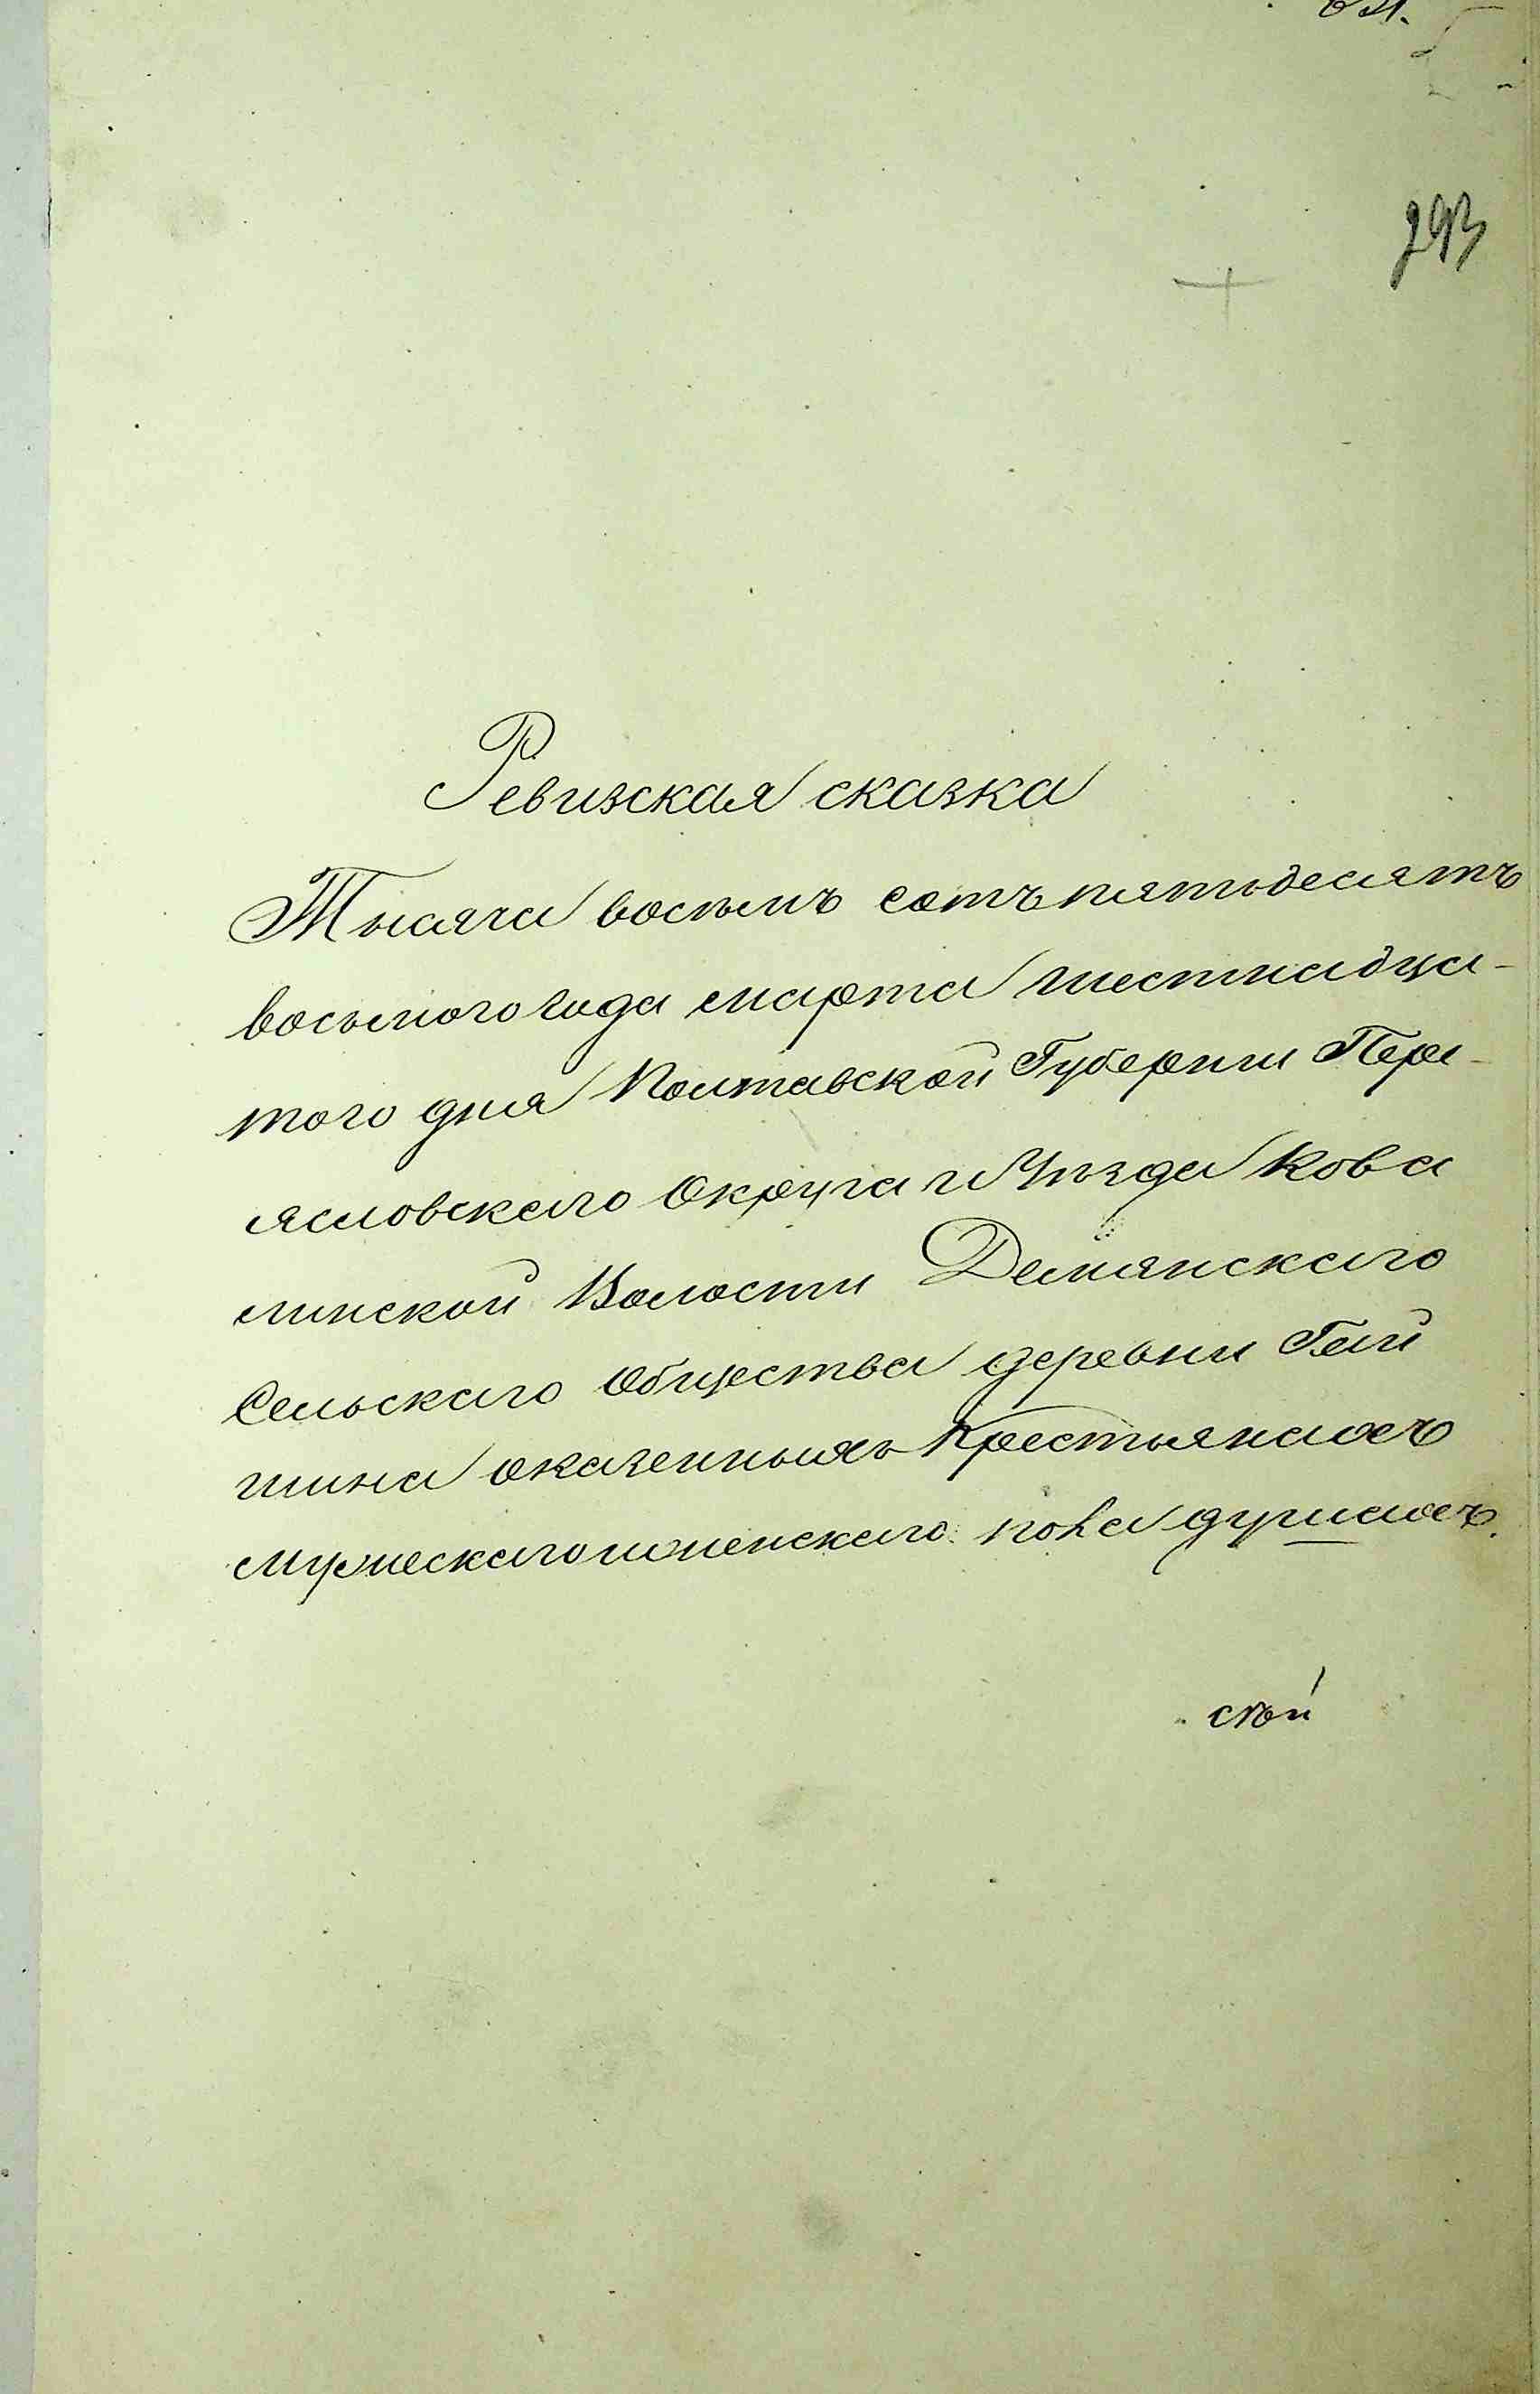 293
Ревизская сказка
Тысяча восемь сотъ пятьдесятъ
восьмого года марта шестнадца-
того дня Полтавской Губернии Пере-
яславского Округа и Уѣзда Кова
линской Волости Демянскаго
Сельскаго Общества деревни Гай
шина о казенныхъ Крестьянахъ
мужескаго и женскаго пола душахъ.